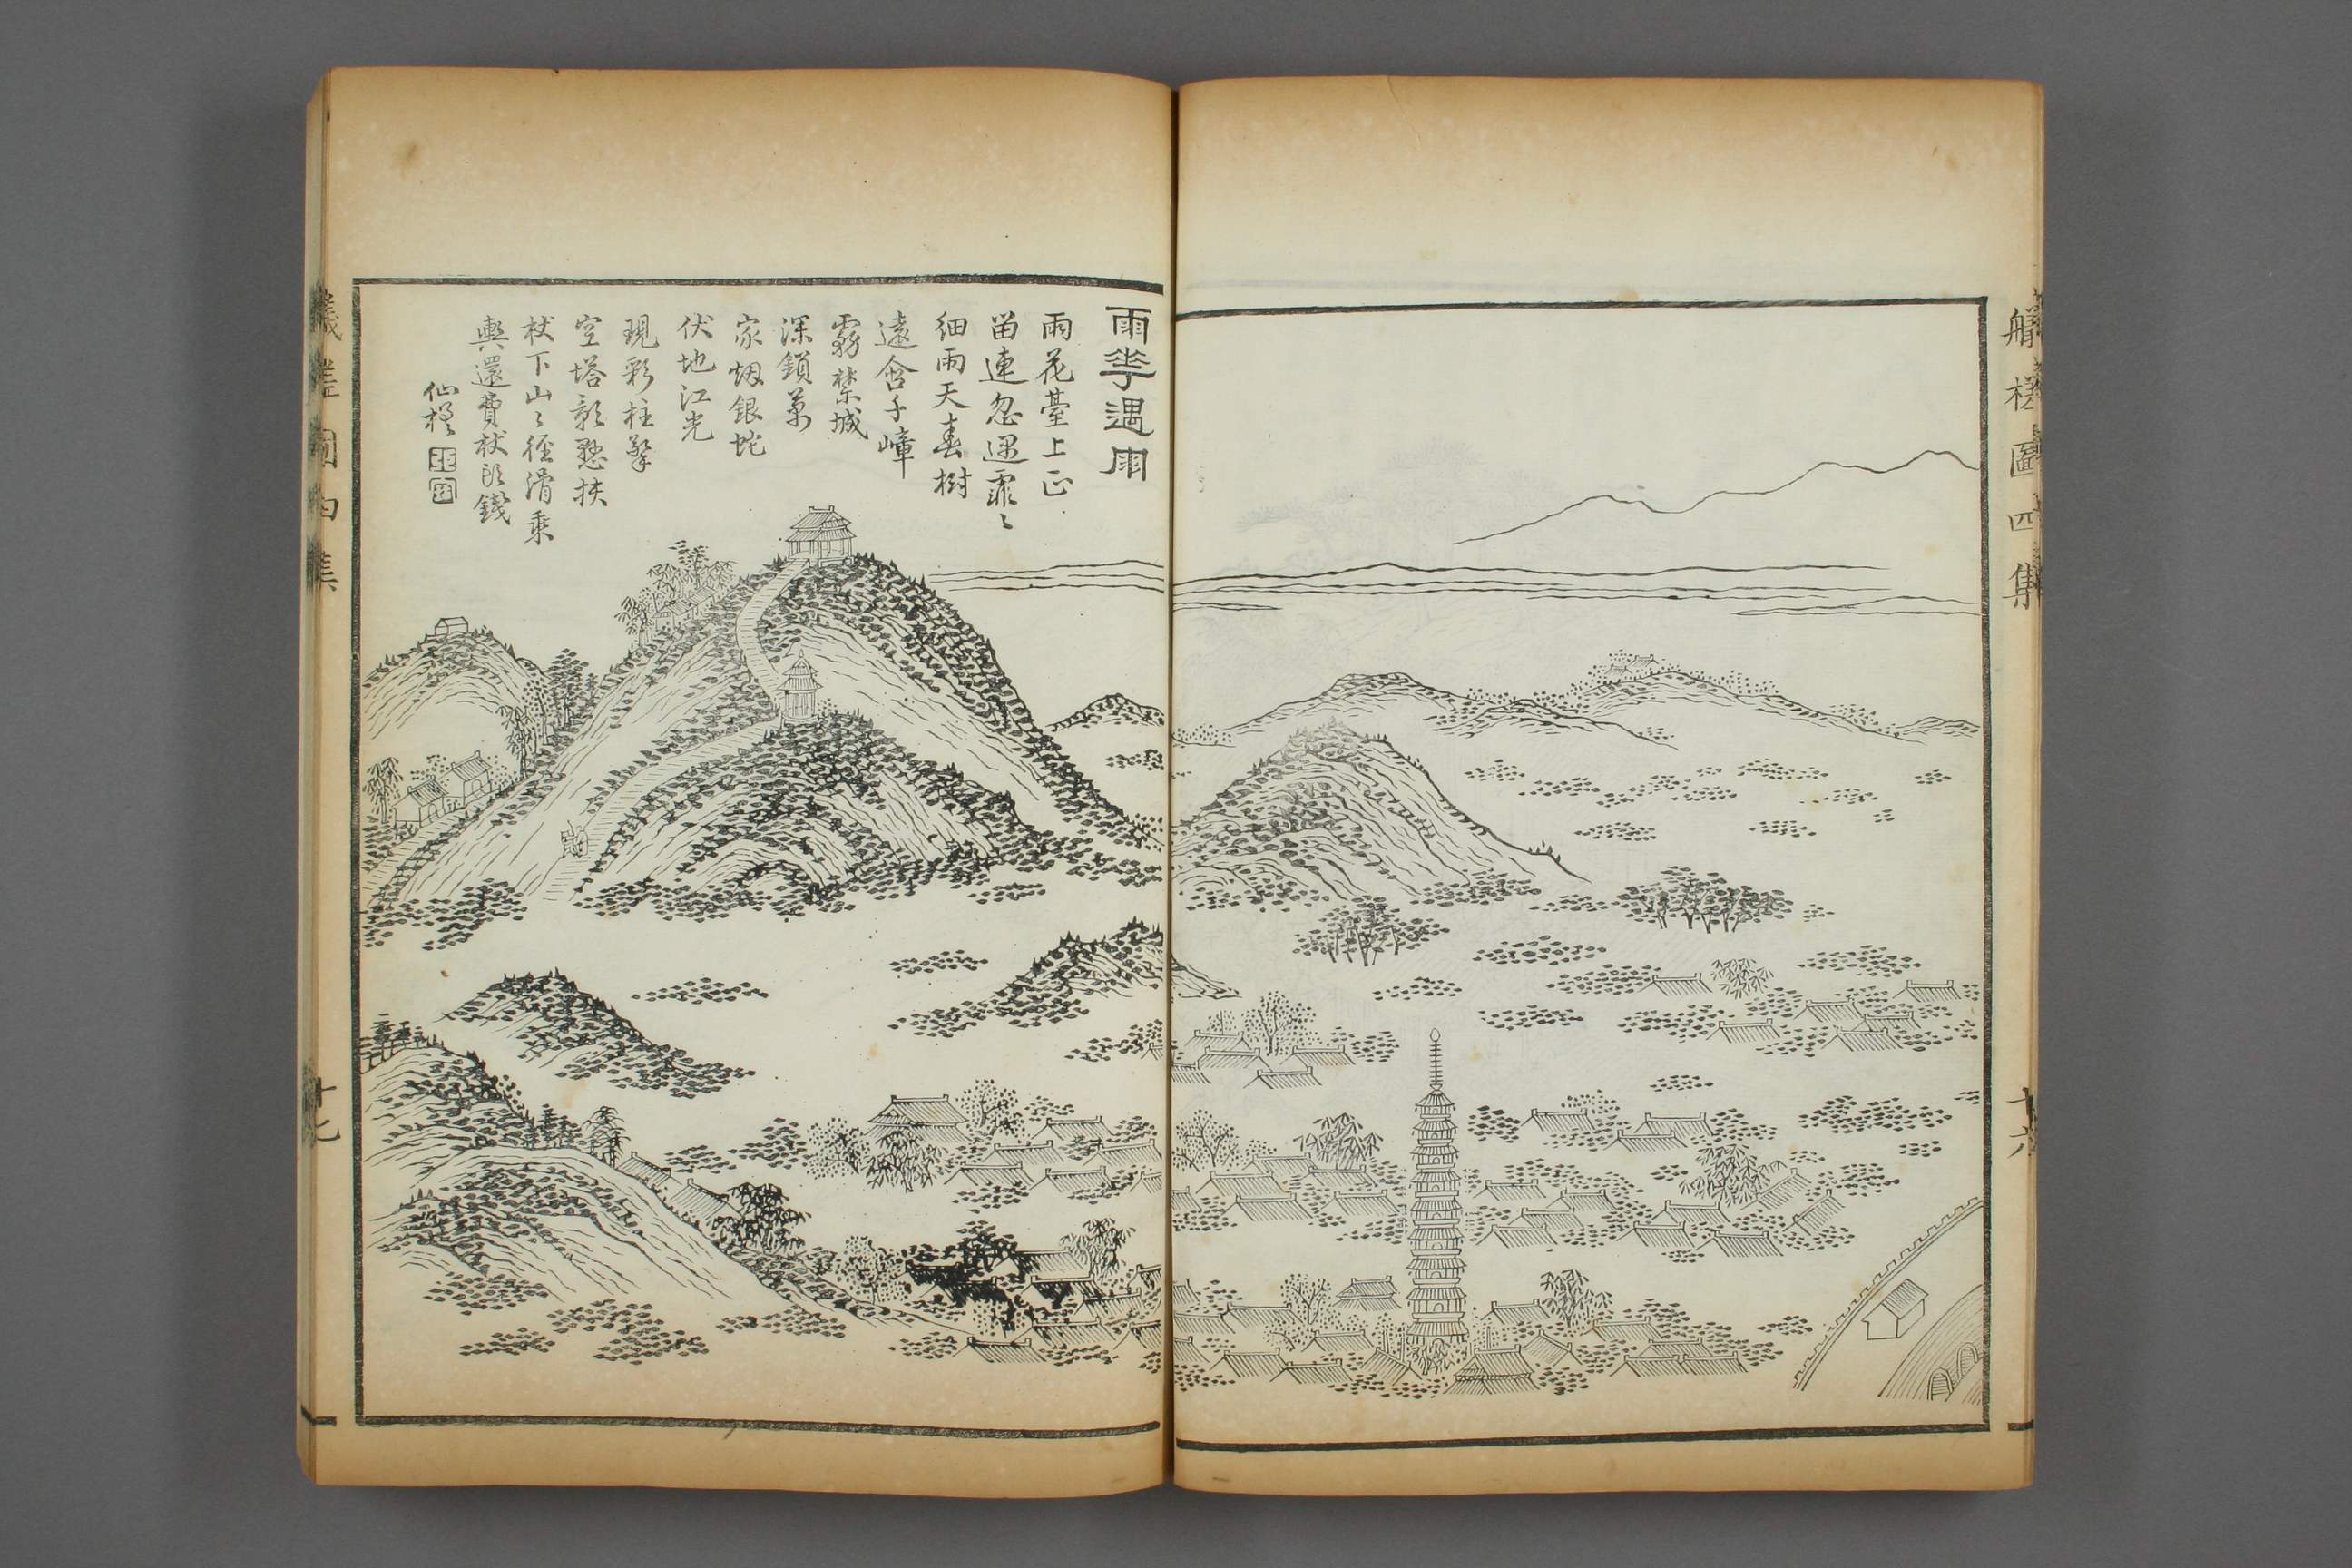 艤槎圖四集
十六
雨華遇雨
雨花臺上正
留連忽遇霏〻
細雨天春樹
遠含千嶂
霧禁城
深鎖萬
家烟銀蛇
伏地江光
現彩柱擎
空塔影懸扶
杖下山〻徑滑乘
輿還費杖頭錢
仙槎
張
寶
艤槎圖四集
十七